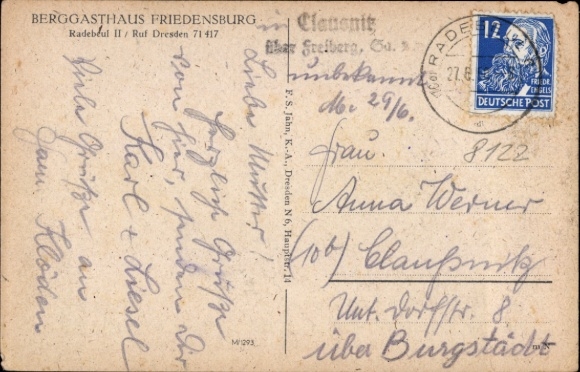 BERGGASTHAUS FRIEDENSBURG
Radebeul II / Ruf Dresden 71 417
Liebe Mutter!
Herzlich Grüße
von hier, senden Dir
Karl + Liesel
Viele Grüße an
Fam. Klöden
M/1293
F. S. Jahn, K.-A., Dresden N 6, Hauptstr. 14
in Clausnitz
über Freiberg, Sa. 2
unbekannt
M. 29/6.
RADEBEUL
27.6.
12
FRIEDR.
ENGELS
DEUTSCHE POST
8122
Frau
Anna Werner
(10b) Claußnitz
Unt. Dorfstr. 8
über Burgstädt